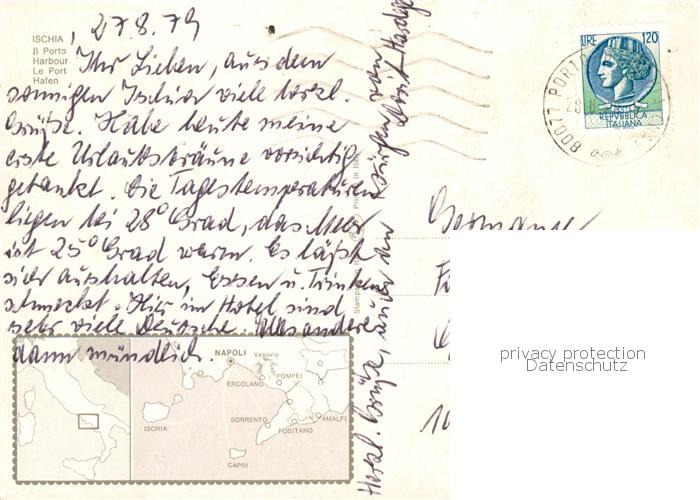 ISCHIA, 27.8.79
Il Porto
Harbour
Le Port
Hafen
Ihr Lieben, aus dem
sonnigen Ischia viele herzl.
Grüße. Habe heute meine
erste Urlaubsbräune vorsichtig
getankt. Die Tagestemperaturen
liegen bei 28° Grad, das Meer
ist 25° Grad warm. Es läßt
sich aushalten, Essen u. Trinken
schmeckt. Hier im Hotel sind
sehr viele Deutsche. Alles andere
dann mündlich.
Herzl. Grüße, auch an Jürgen von
LIRE 120
POSTE
REPVBBLICA
ITALIANA
80077 PORTO
Germany
privacy protection
Datenschutz
NAPOLI
Vesuvio
ERCOLANO
POMPEI
ISCHIA
SORRENTO
POSITANO
AMALFI
CAPRI